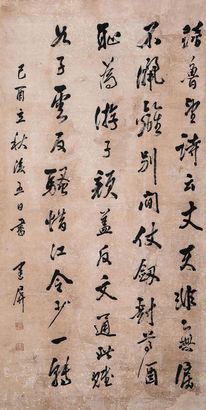 陸魯望詩云丈夫非無淚
不灑離別間仗劍對尊酒
恥為游子顏蓋反文通此賦
如子雲反騷惜江令少一轉
己酉立秋後五日書